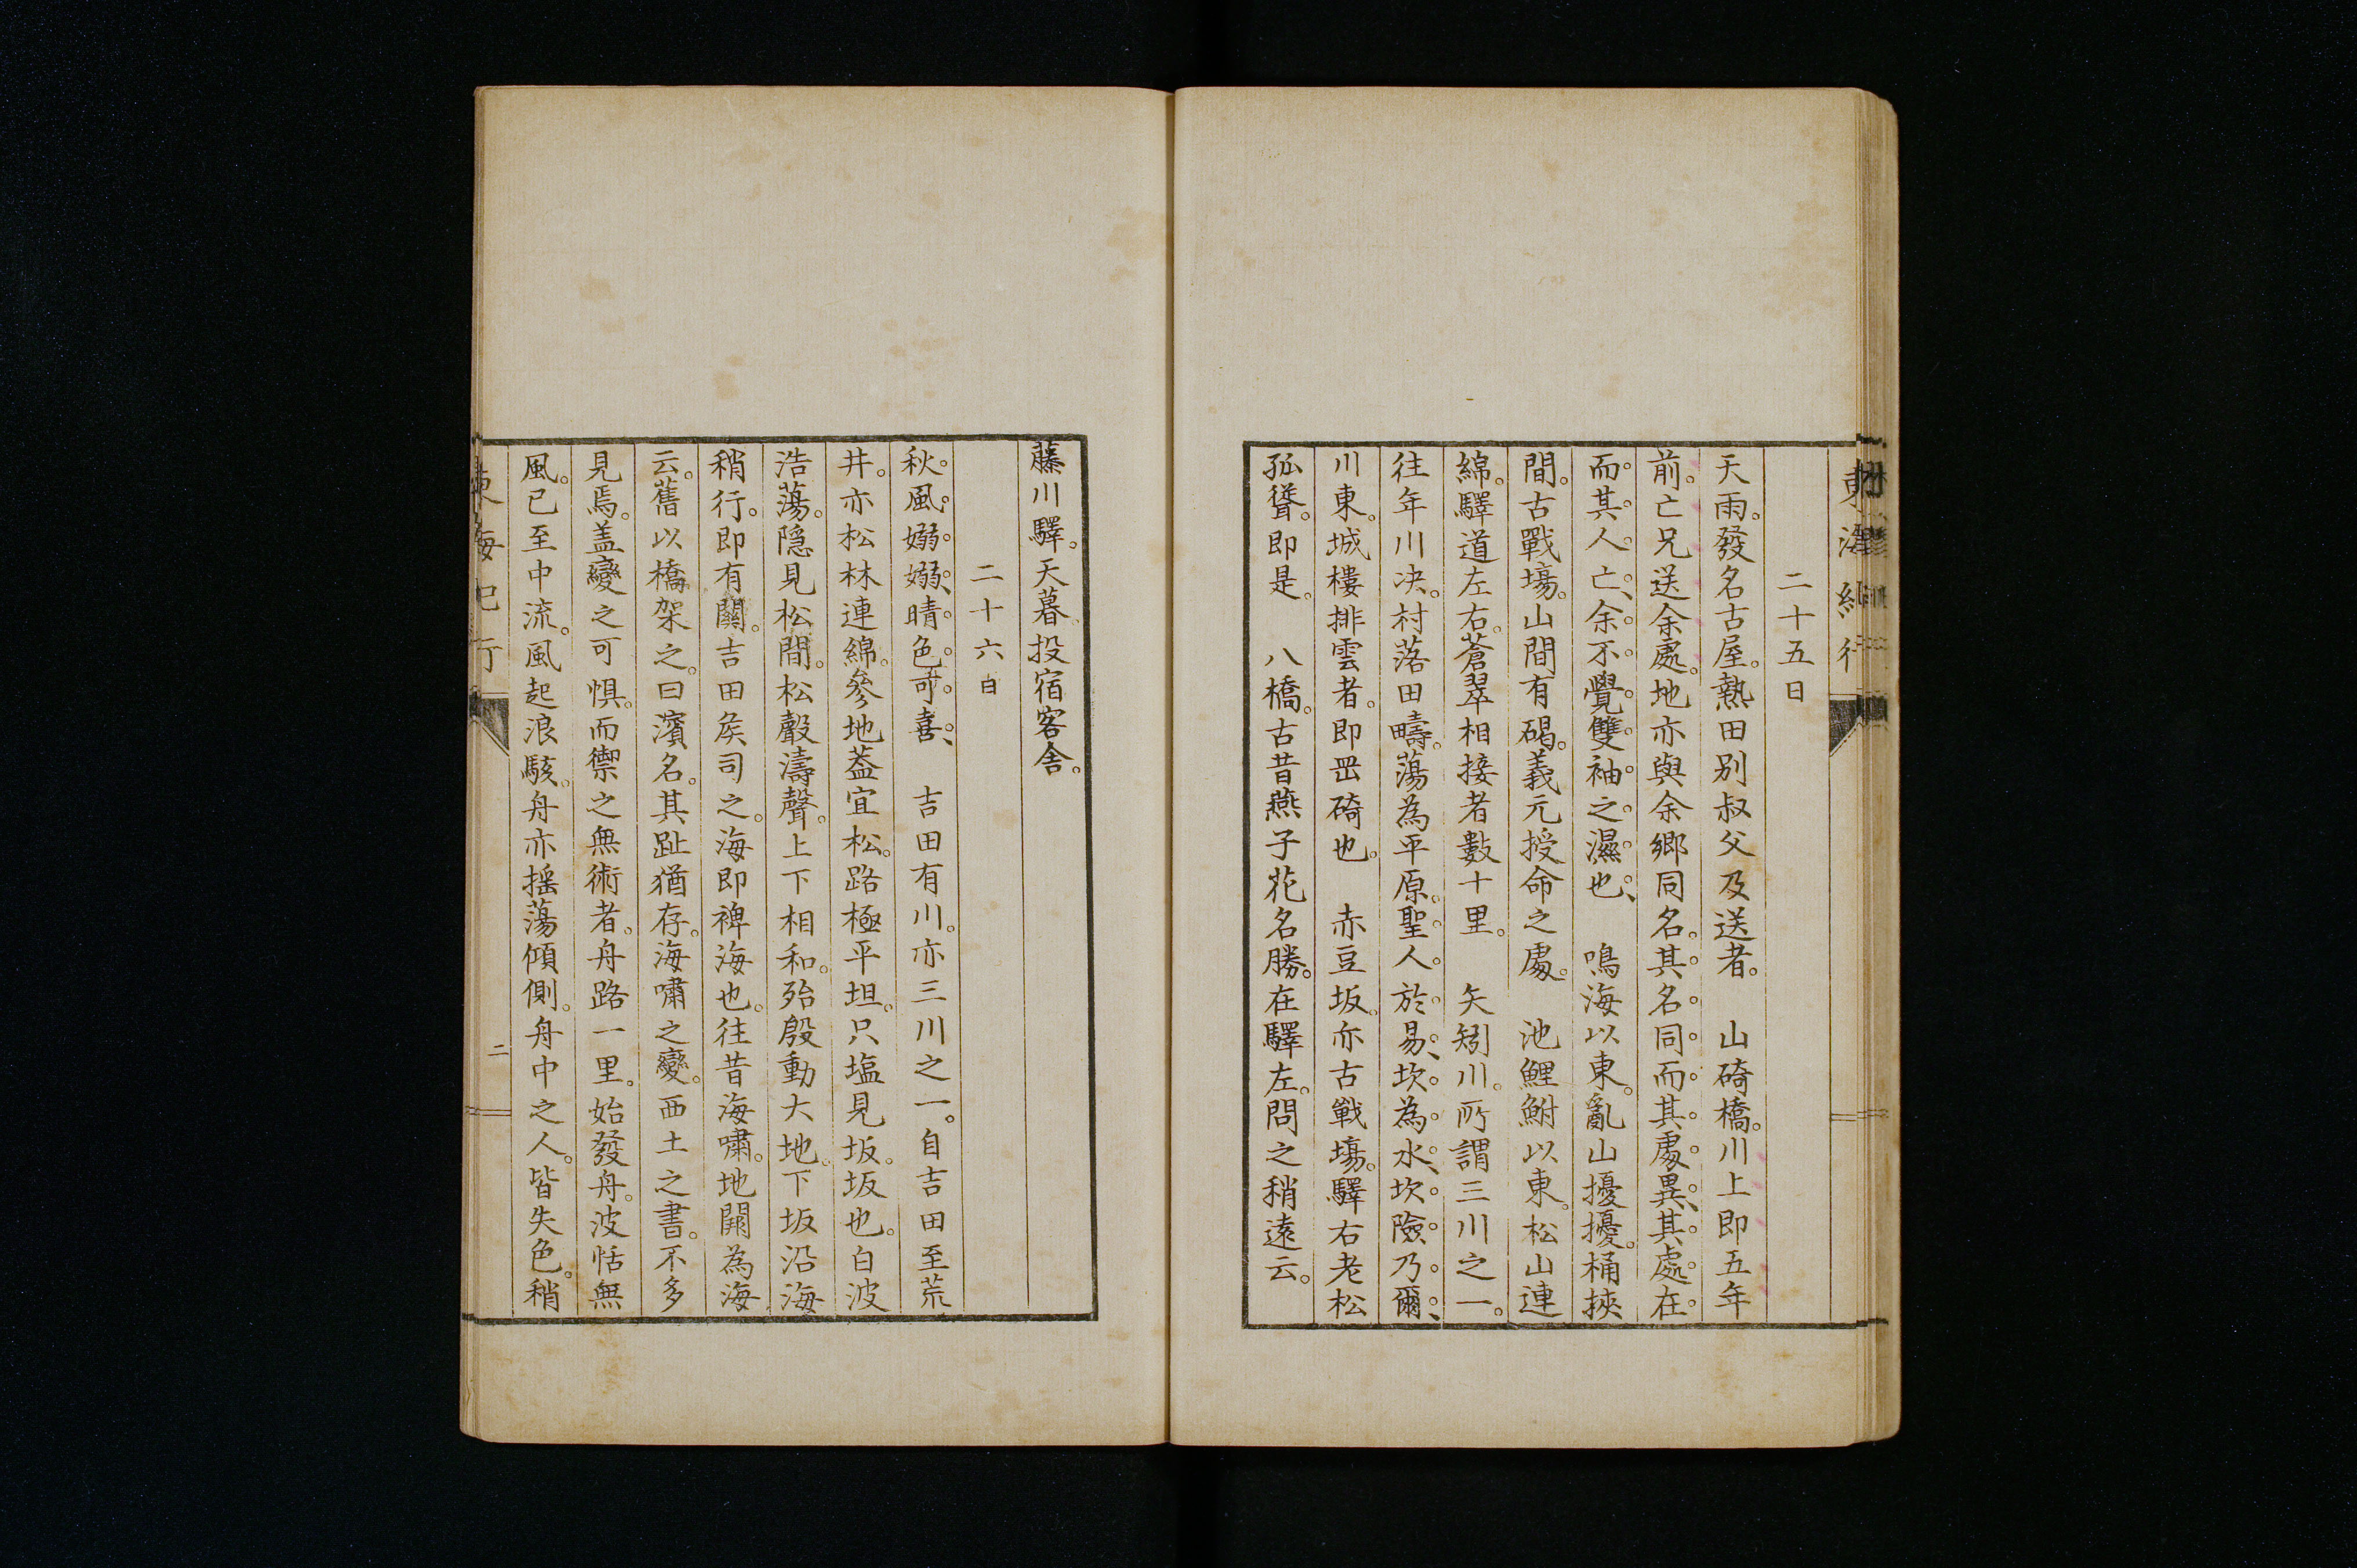 東海紀行
二十五日
天雨。發名古屋。熱田别叔父及送者。　山碕橋。川上即五年
前。亡兄送余處。地亦與余鄉同名。其名同而其處異、其處在
而其人亡、余不覺雙袖之濕也、　鳴海以東。亂山擾擾。桶挾
間。古戰場。山間有碣。義元授命之處。　池鯉鮒以東。松山連
綿。驛道左右。蒼翠相接者數十里。　矢矧川。所謂三川之一。
往年川决。村落田疇。蕩為平原。聖人於易、坎為水、坎險乃爾、
川東。城樓排雲者。即岡碕也。　赤豆坂。亦古戰場。驛右老松
孤聳。即是。　八橋。古昔燕子花名勝。在驛左。問之稍遠云。
藤川驛。天暮投宿客舍。
二十六日
秋風嫋嫋、晴色可喜、　吉田有川。亦三川之一。自吉田至荒
井。亦松林連綿。參地蓋宜松。路極平坦。只塩見坂。坂也。白波
浩蕩。隐見松間。松聲濤聲。上下相和。殆殷動大地。下坂沿海
稍行。即有關。吉田矦司之。海即裨海也。往昔海嘯。地闢為海
云。舊以橋架之。曰濱名。其趾猶存。海嘯之變。西土之書。不多
見焉。盖變之可惧。而禦之無術者。舟路一里。始發舟。波恬無
風。已至中流。風起浪駭。舟亦揺蕩傾側。舟中之人。皆失色。稍
東海紀行
二